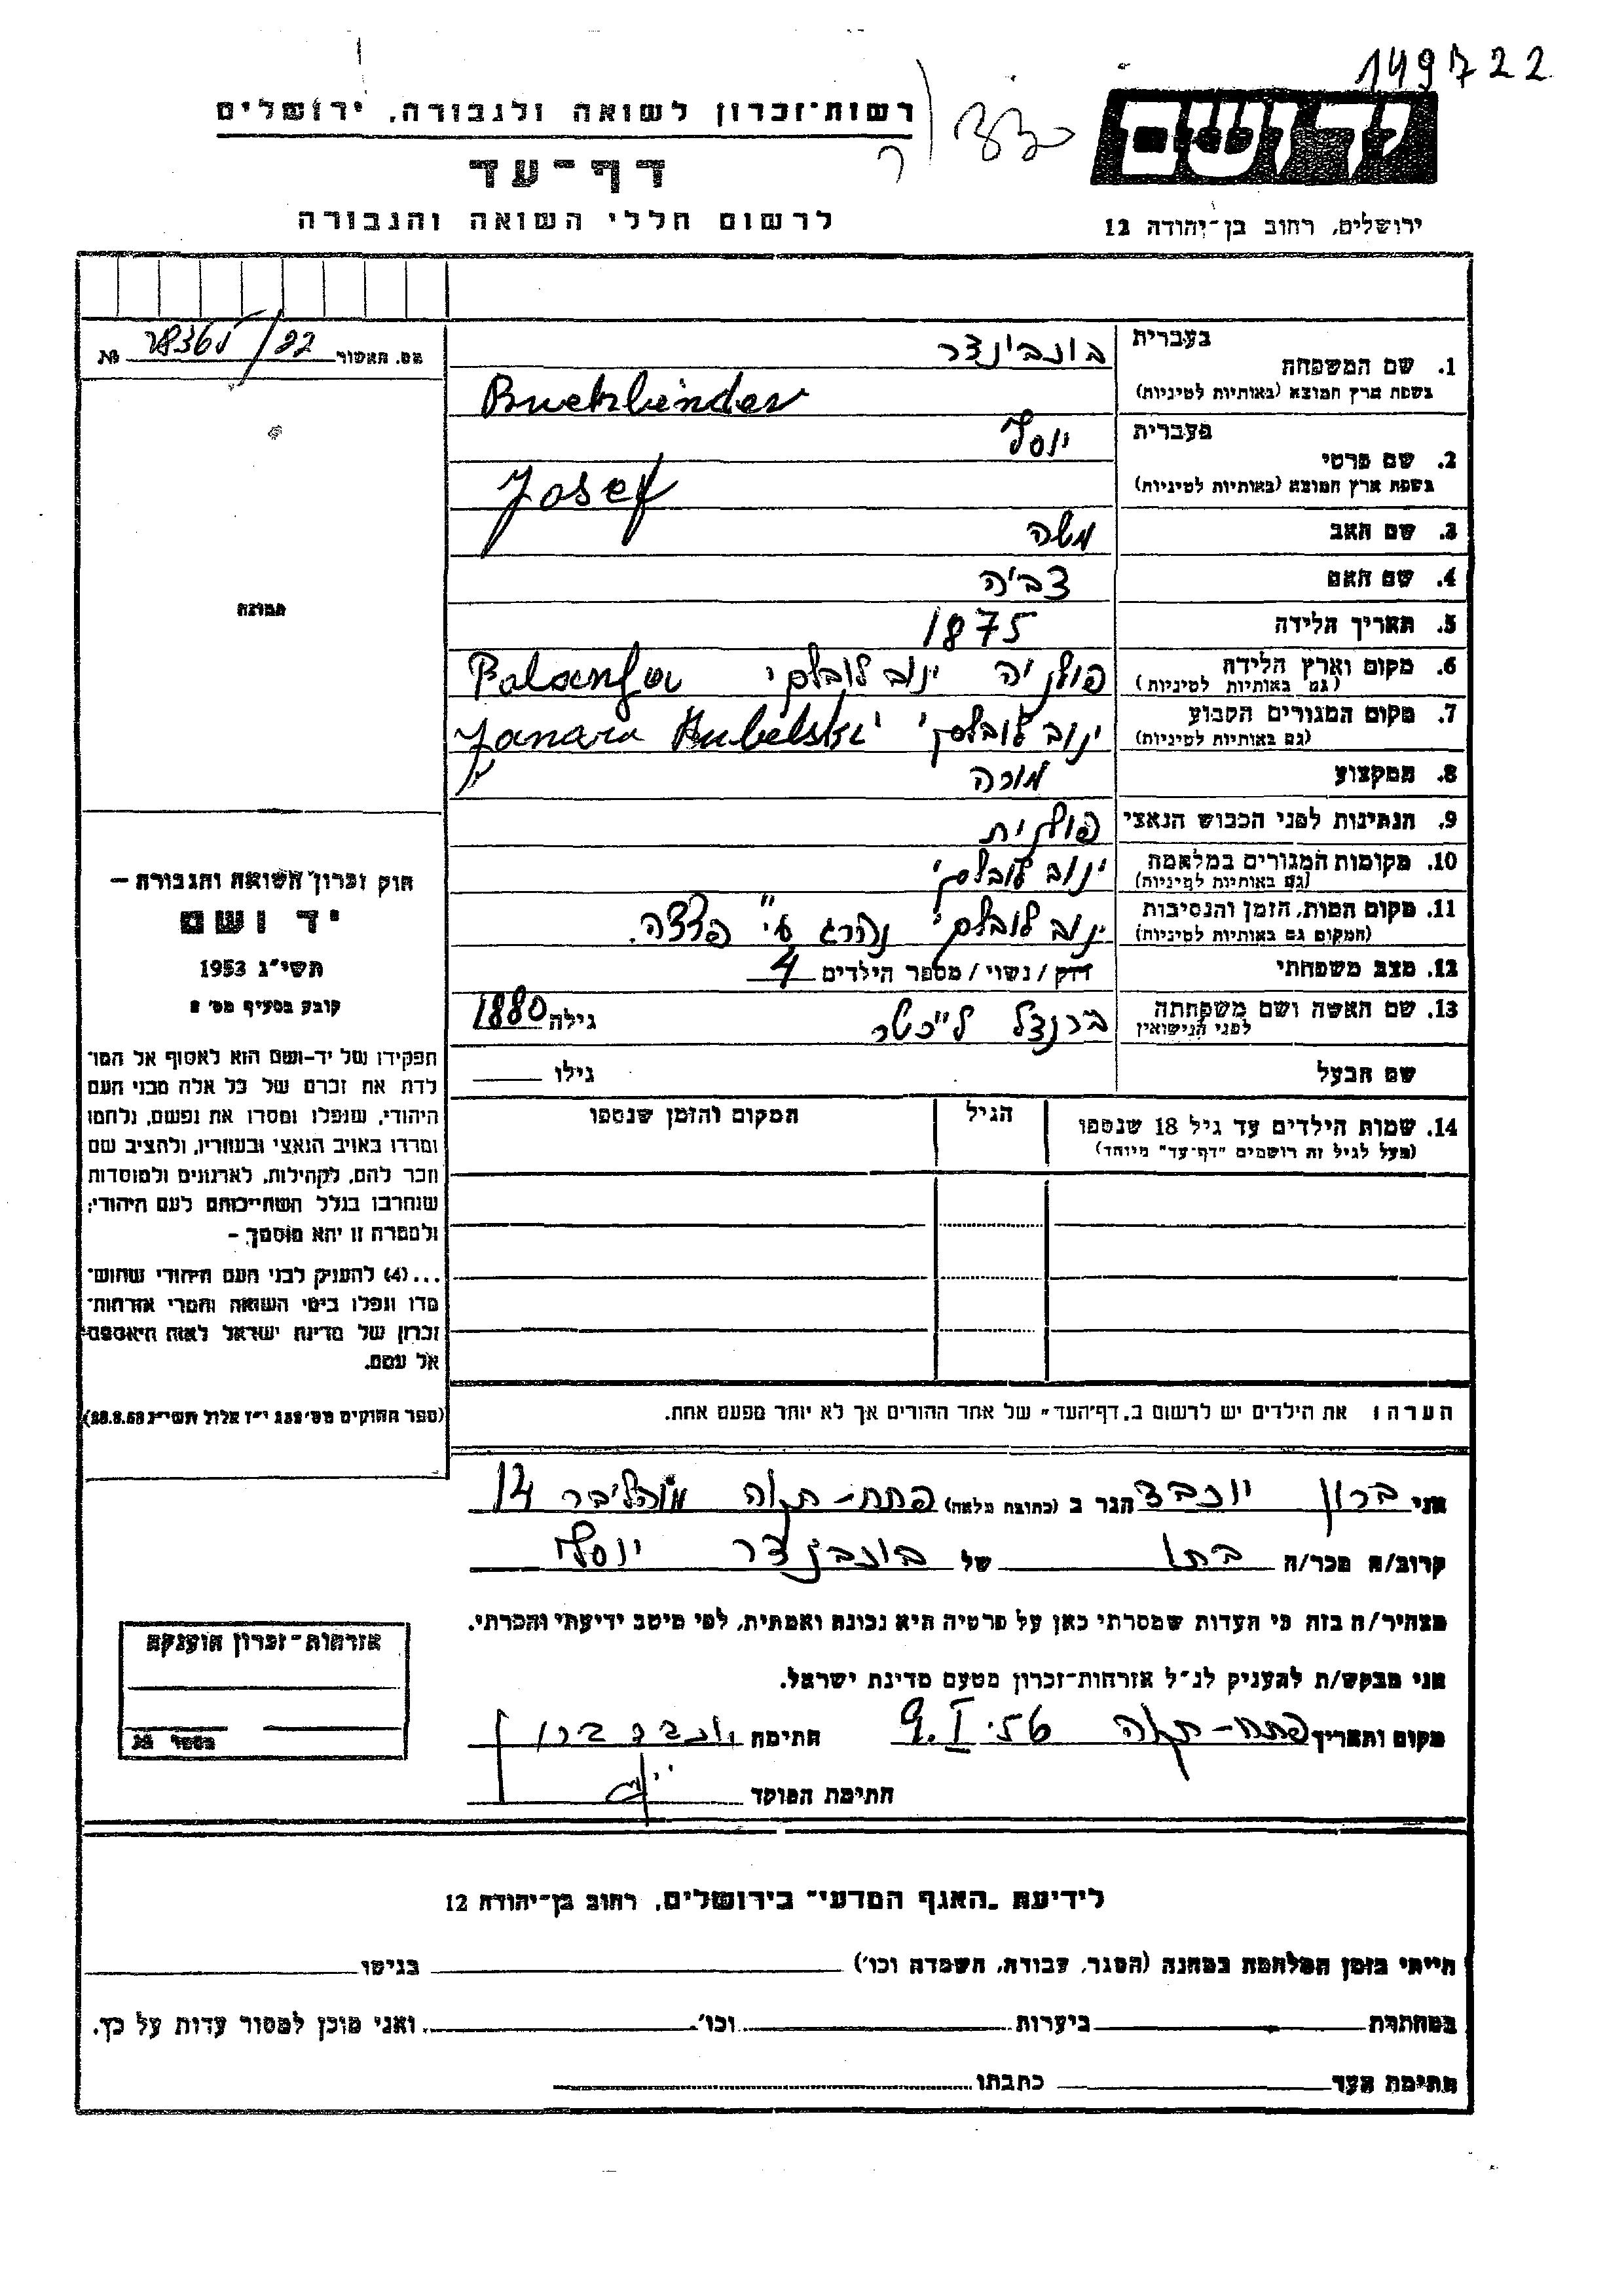 149722
רשות־זכרון לשואה ולגבורה, ירושלים
יד ושם
דף־עד
לרשום חללי השואה והגבורה
ירושלים, רחוב בן־יהודה 12
בעברית
בוכבינדר
1. שם המשפחה
בשפת ארץ המוצא (באותיות לטיניות)
Buchbinder
בעברית
יוסף
2. שם פרטי
בשפת ארץ המוצא (באותיות לטיניות)
Josef
3. שם האב משה
4. שם האם צביה
5. תאריך הלידה 1875
6. מקום וארץ הלידה פולניה ינוב לובלסקי
(גם באותיות לטיניות)
7. מקום המגורים הקבוע ינוב לובלסקי
(גם באותיות לטיניות)
8. המקצוע מורה
9. הנתינות לפני הכבוש הנאצי פולנית
10. מקומות המגורים במלחמה ינוב לובלסקי
(גם באותיות לטיניות)
11. מקום המות, הזמן והנסיבות ינוב לובלסקי נהרג ע״י פצצה.
(המקום גם באותיות לטיניות)
12. מצב משפחתי רוק / נשוי / מספר הילדים 4
13. שם האשה ושם משפחתה ברנדל גילה 1880
לפני הנישואין
שם הבעל גילו
14. שמות הילדים עד גיל 18 שנספו הגיל המקום והזמן שנספו
(מעל לגיל זה רושמים "דף־עד" מיוחד)
הערה: את הילדים יש לרשום ב„דף־העד״ של אחד ההורים אך לא יותר מפעם אחת.
מס. האשור №
תמונה
חוק זכרון השואה והגבורה –
יד ושם
תשי״ג 1953
קובע בסעיף מס׳ 2
תפקידו של יד־ושם הוא לאסוף אל המו־
לדת את זכרם של כל אלה מבני העם
היהודי, שנפלו ומסרו את נפשם, נלחמו
ומרדו באויב הנאצי ובעוזריו, ולהציב שם
וזכר להם, לקהילות, לארגונים ולמוסדות
שנחרבו בגלל השתייכותם לעם היהודי;
ולמטרה זו יהא מוסמך –
...(4) להעניק לבני העם היהודי שהוש־
מדו ונפלו בימי השואה והמרי אזרחות־
זכרון של מדינת ישראל לאות היאספם
אל עמם.
(ספר החוקים מס׳ 132 י״ז אלול תשי״ג 28.8.53)
אני ברון יוכבד הגר ב (כתובת מלאה) פתח-תקוה מוהליבר 14
קרוב/ה מכר/ה בתו של בוכבינדר יוסף
מצהיר/ה בזה כי העדות שמסרתי כאן על פרטיה היא נכונה ואמתית, לפי מיטב ידיעתי והכרתי.
אני מבקש/ת להעניק לנ״ל אזרחות־זכרון מטעם מדינת ישראל.
מקום ותאריך פתח-תקוה 9.I.56 חתימה יוכבד ברון
חתימת הפוקד
אזרחות־זכרון הוענקה
מספר №
לידיעת „האגף המדעי״ בירושלים, רחוב בן־יהודה 12
הייתי בזמן המלחמה במחנה (הסגר, עבודה, השמדה וכו׳) בגיטו
במחתרת ביערות וכו׳ ואני מוכן למסור עדות על כך.
חתימת העד כתבתו